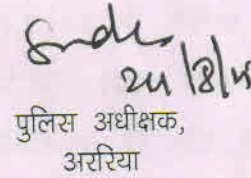 24/8/15
पुलिस अधीक्षक,
अररिया